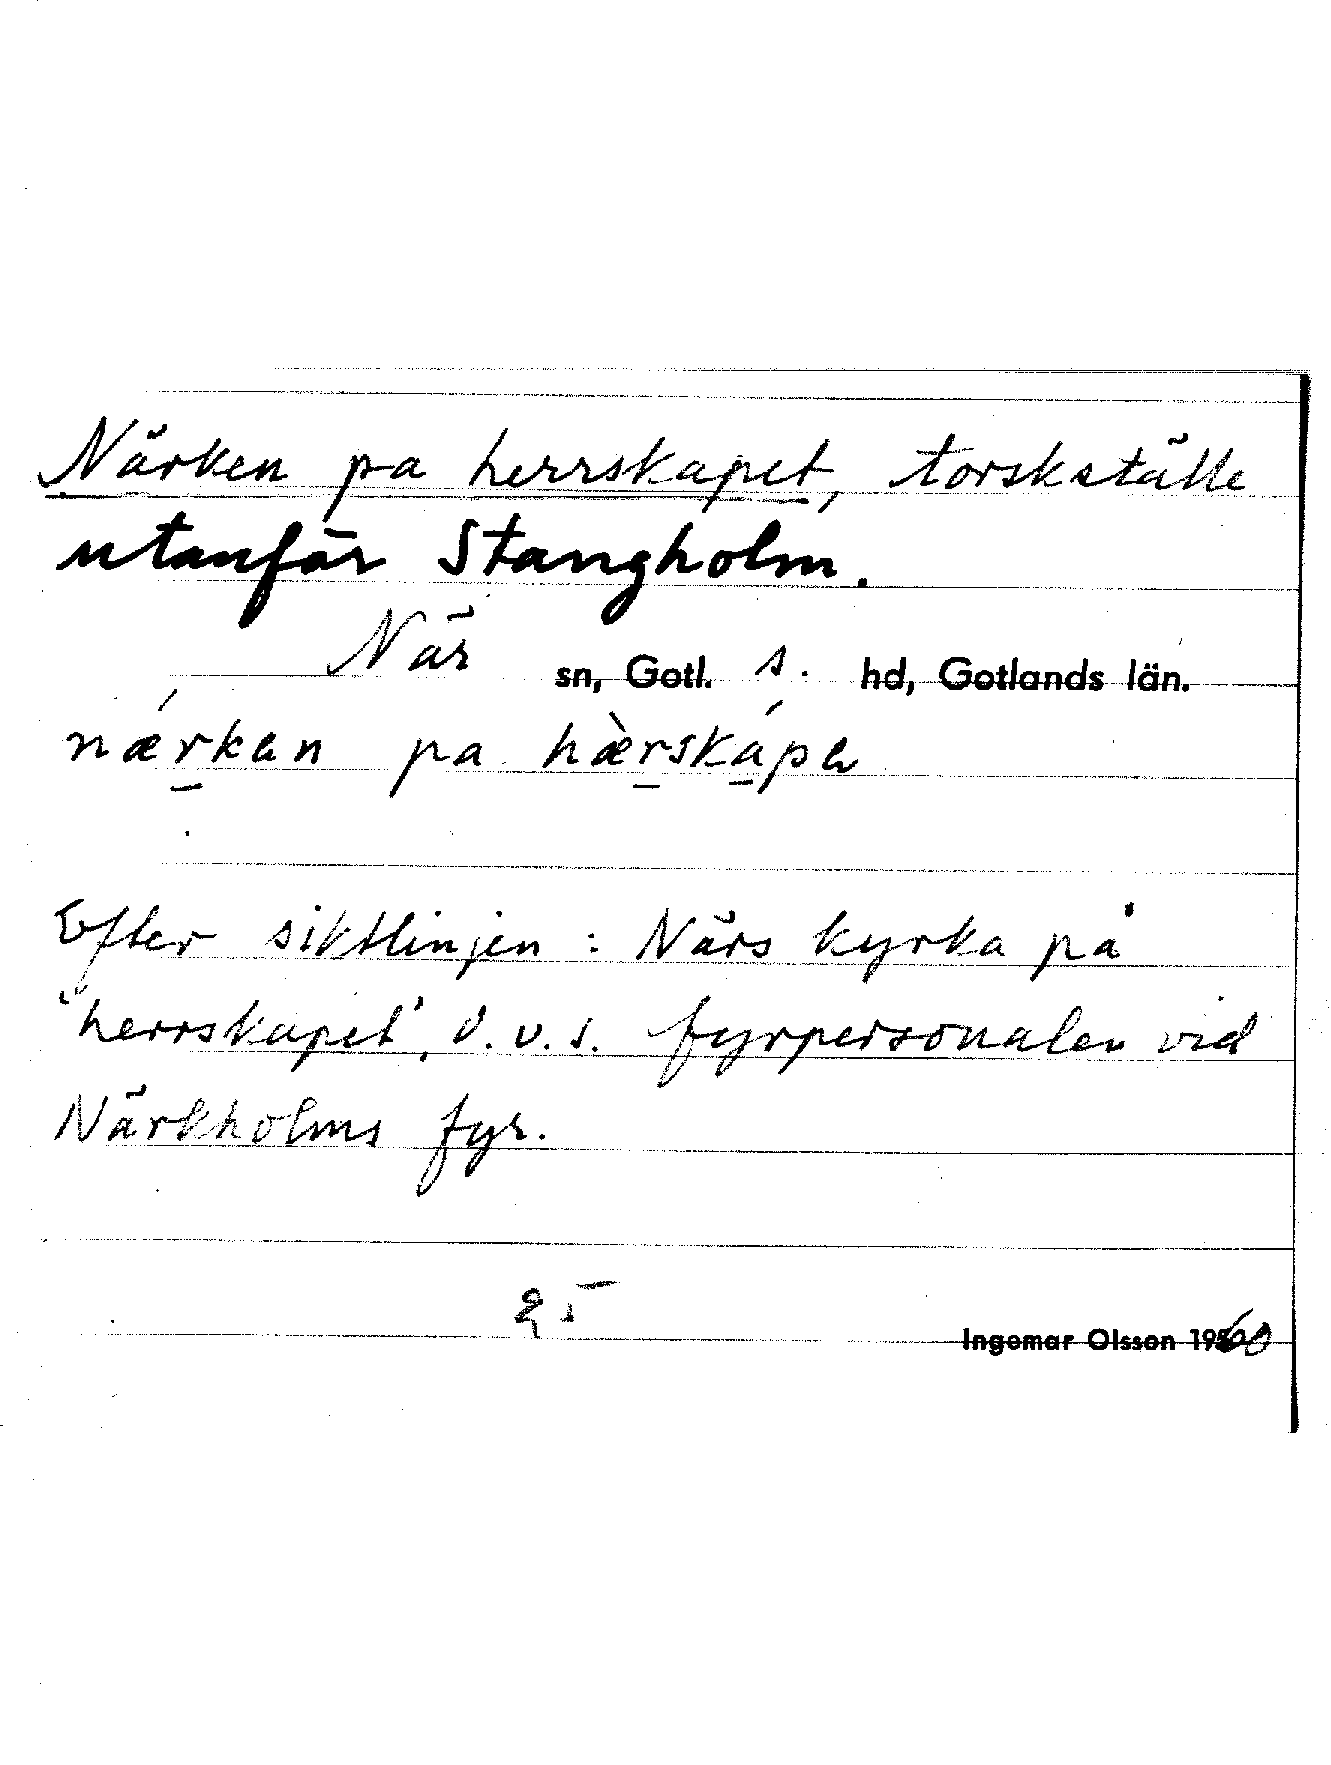 Närken pa herrskapet, torskställe
utanför Stangholm.
När sn, Gotl. s. hd, Gotlands län.
nærkan pa hærskapa
Efter siktlinjen: Närs kyrka på
"herrskapet", d.v.s. fyrpersonalen vid
Närkholms fyr.
Ingemar Olsson 1960